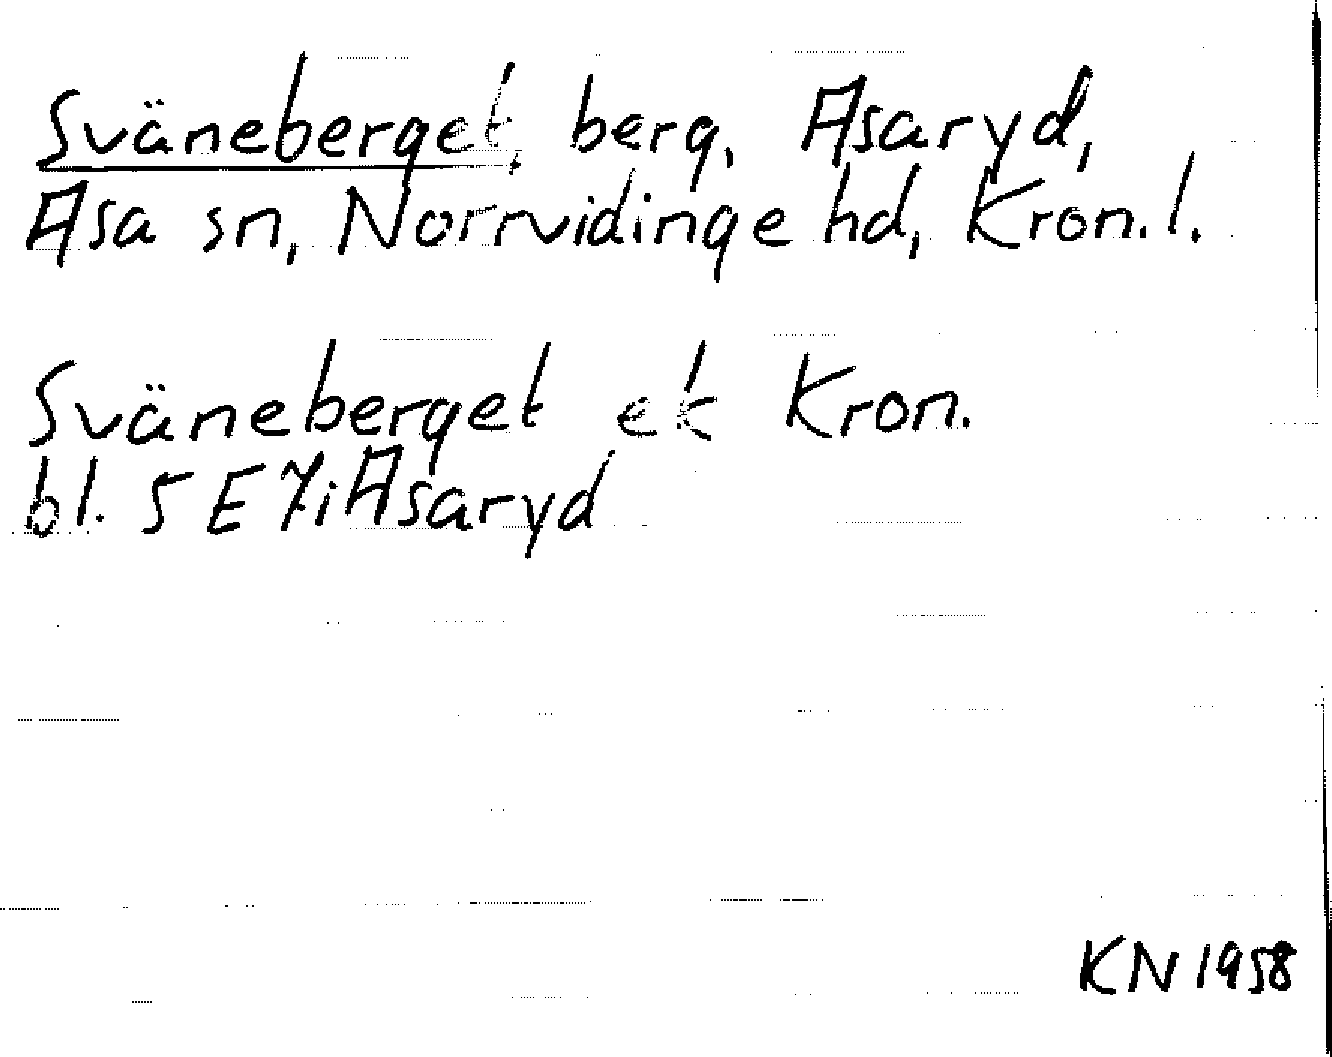 Sväneberget, berg, Asaryd,
Asa sn, Norrvidinge hd, Kron. l.
Sväneberget ek Kron.
bl. 5 E 7i Asaryd
KN 1958